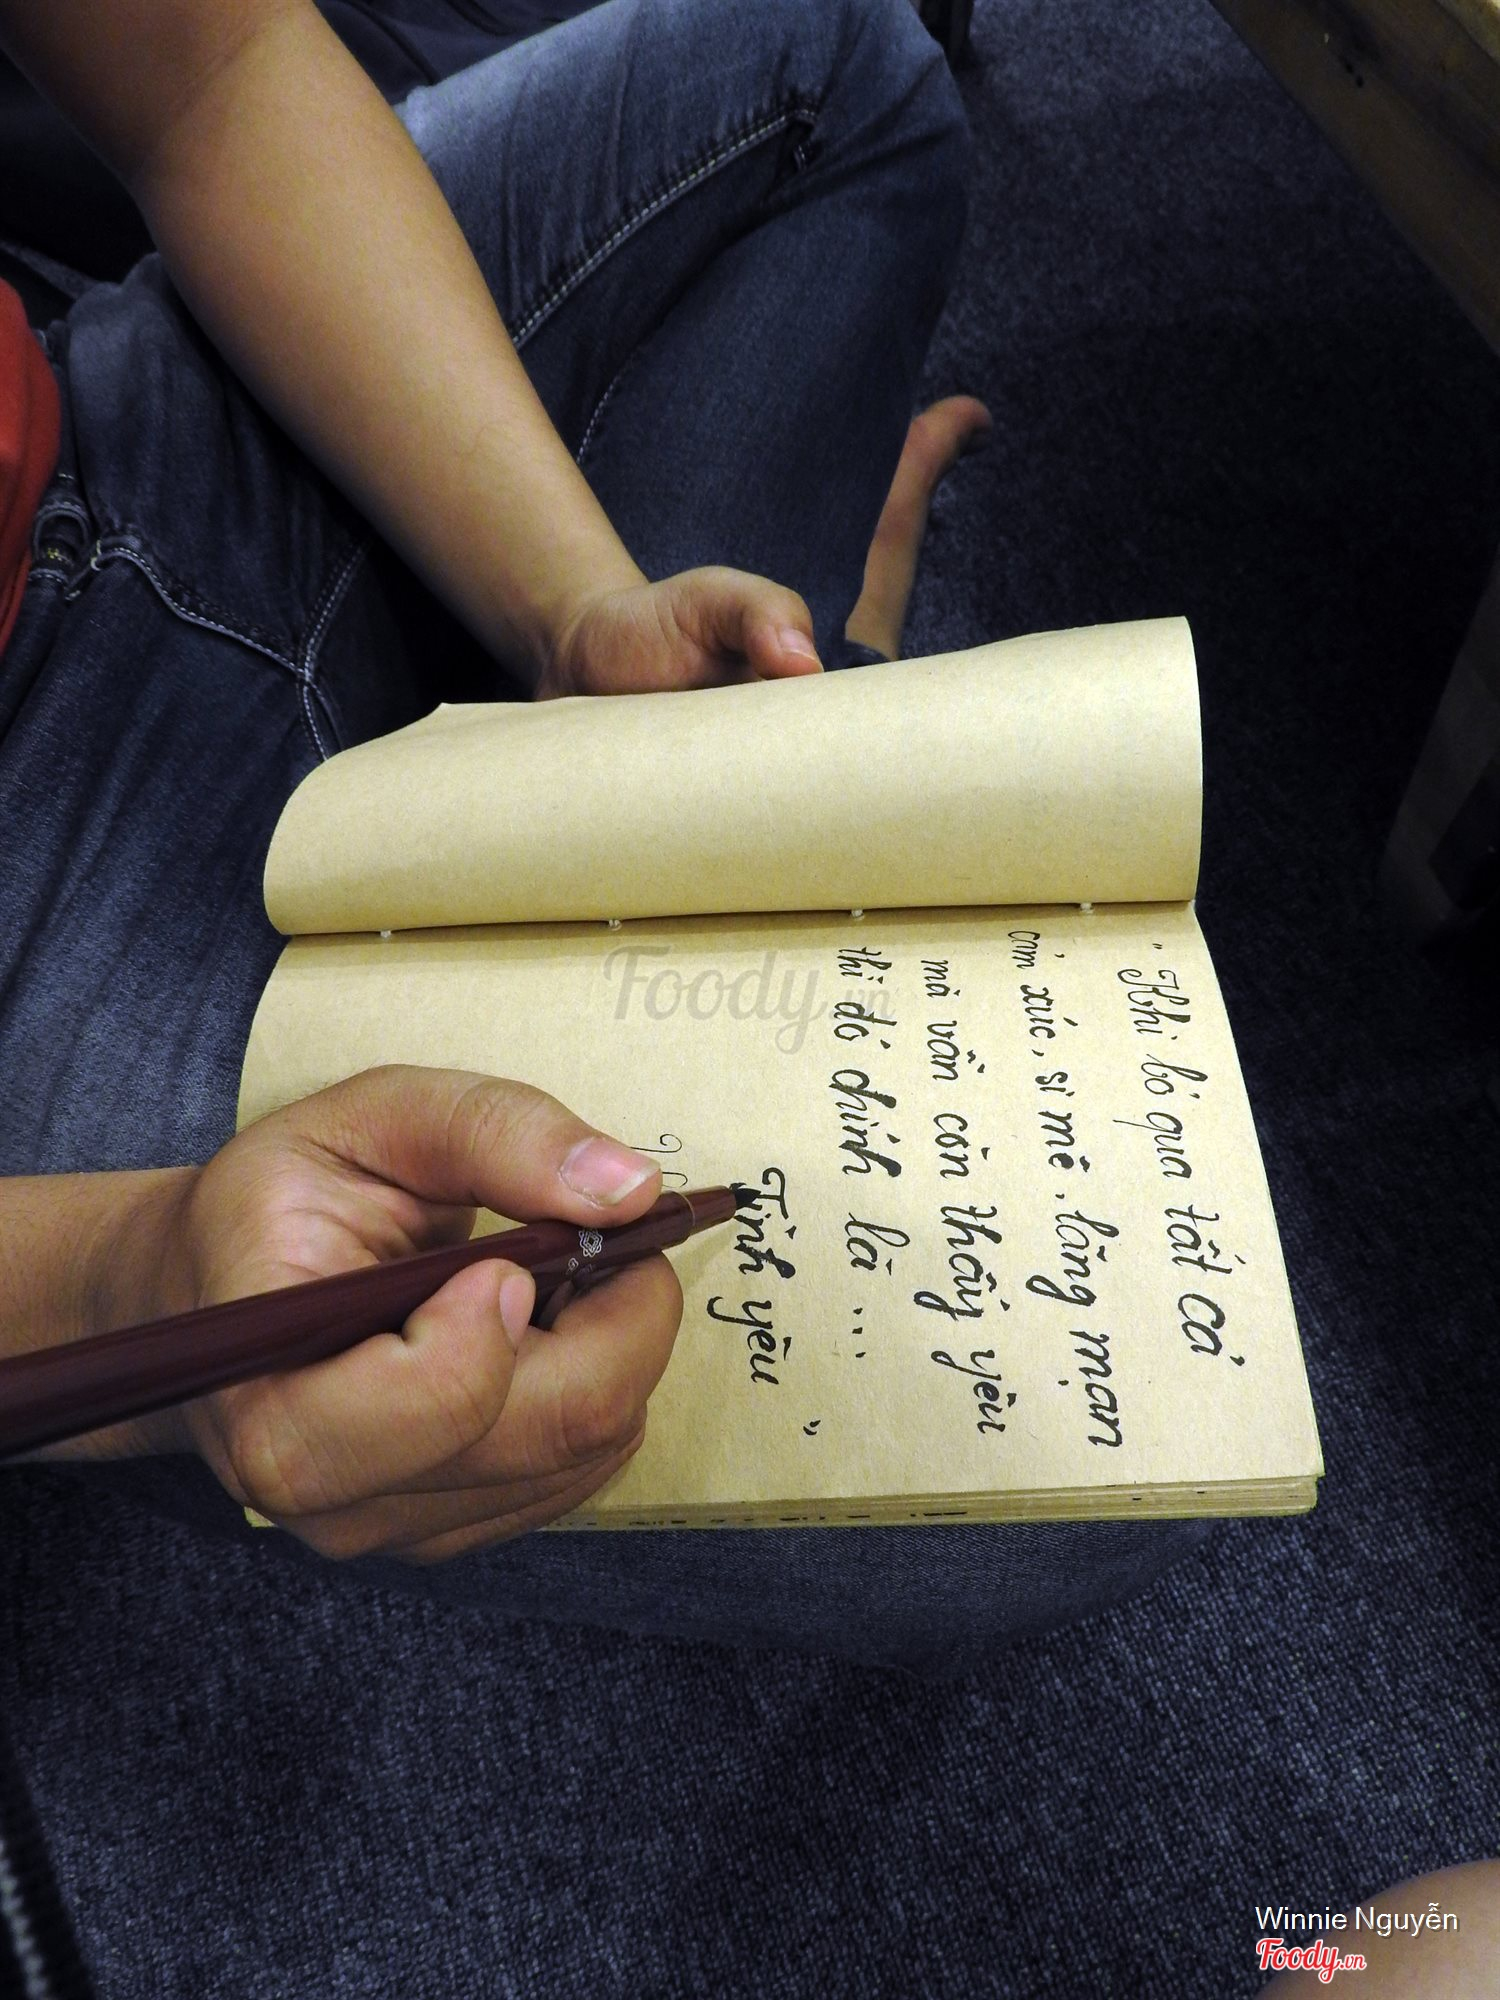 " Khi bỏ qua tất cả
cảm xúc, si mê, lãng mạn
mà vẫn còn thấy yêu
thì đó chính là ...
Tình yêu "
Foody.vn
Winnie Nguyễn
Foody.vn